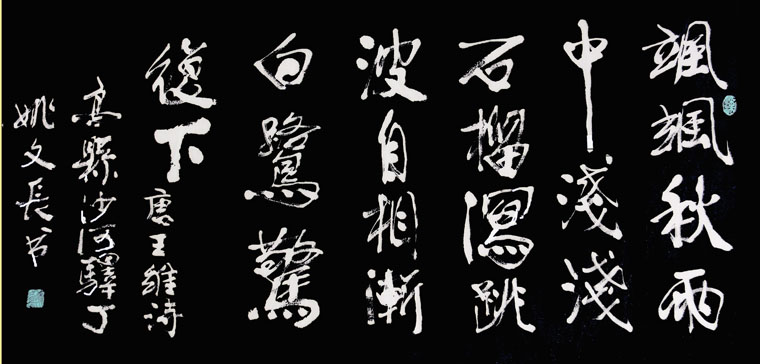 颯颯秋雨
中淺淺
石榴瀉跳
波自相漸
白鷺驚
復下唐王維詩
高縣沙河驛丁
姚文長书